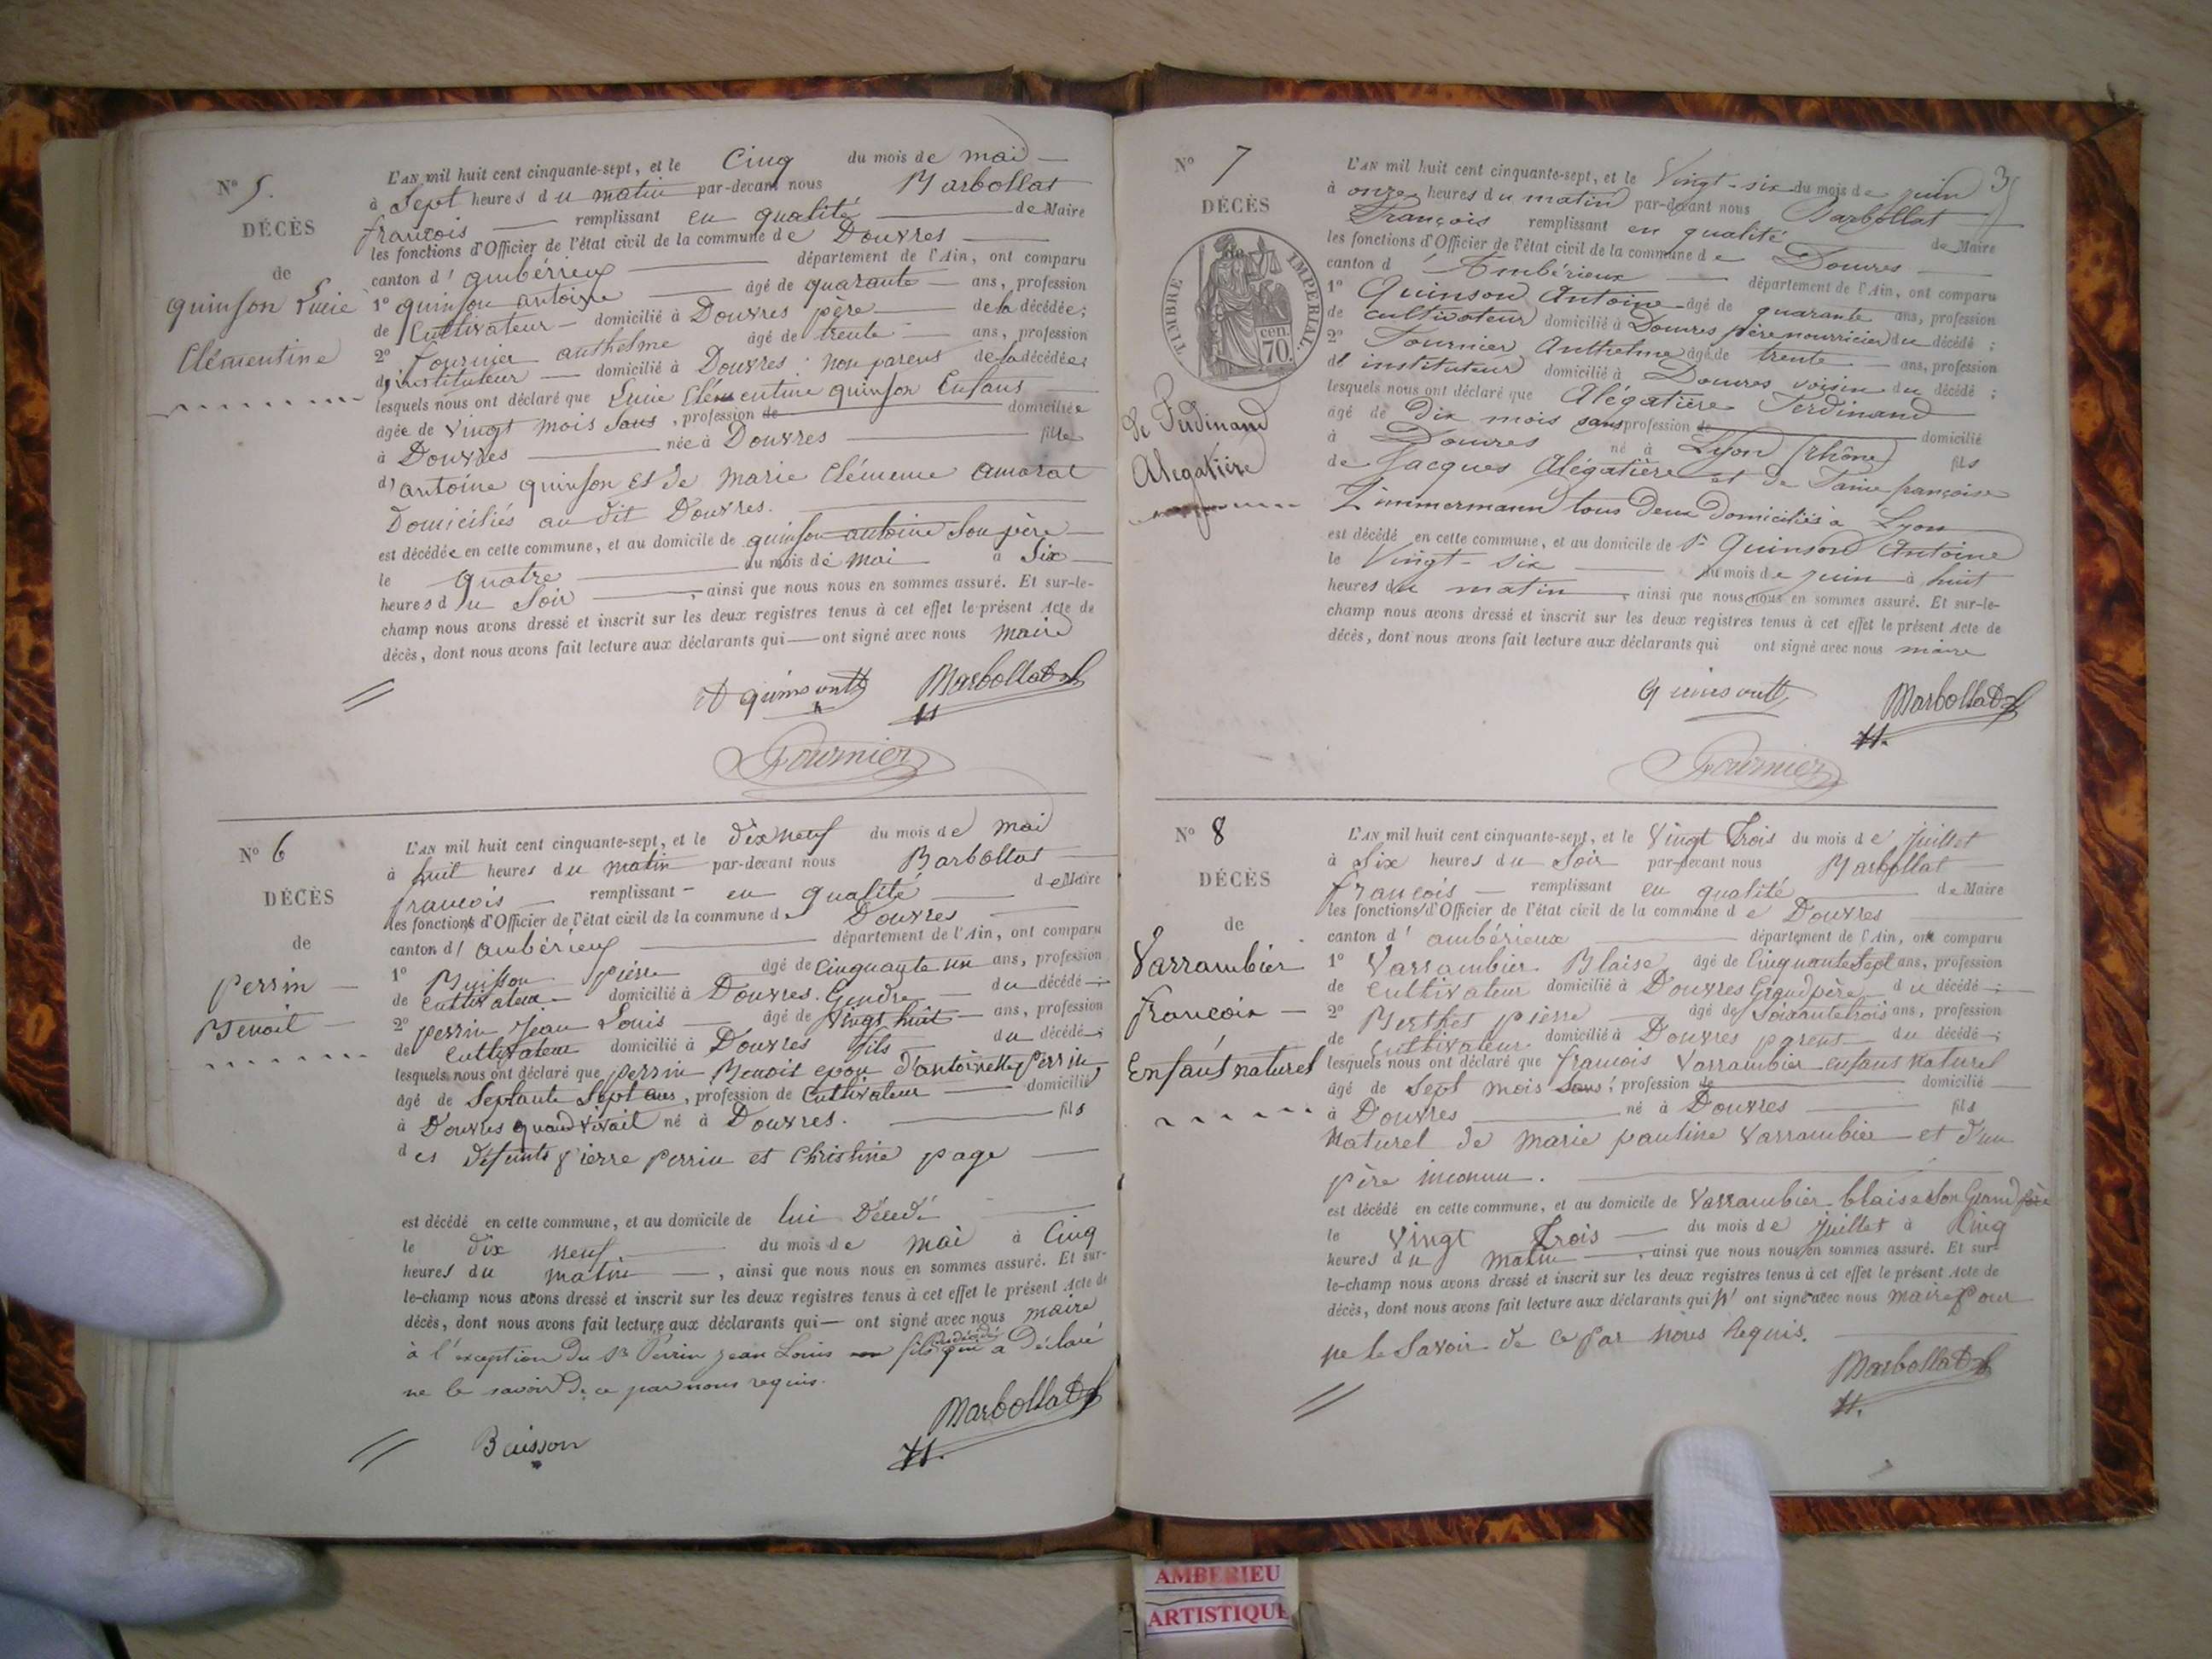 N° 5.
DÉCÈS
de
quinson Lucie
Clémentine
L'AN mil huit cent cinquante-sept, et le Cinq du mois de mai
à Sept heures du matin par-devant nous Barbollat
francois remplissant en qualité de Maire
les fonctions d'Officier de l'état civil de la commune de Douvres
canton d' ambérieux département de l'Ain, ont comparu
1° quinson antoine âgé de quarante ans, profession
de Cultivateur domicilié à Douvres père de la décédée;
2° fournier anthelme âgé de trente ans, profession
d'instituteur domicilié à Douvres non parens de la décédée;
lesquels nous ont déclaré que Lucie Clémentine quinson Enfans
âgée de vingt mois sans, profession de domiciliée
à Douvres née à Douvres fille
d'antoine quinson et de marie Clémence amorat
Domiciliés au dit Douvres.
est décédée en cette commune, et au domicile de quinson antoine son père
le quatre du mois de mai à Six
heures du Soir, ainsi que nous nous en sommes assuré. Et sur-le-
champ nous avons dressé et inscrit sur les deux registres tenus à cet effet le présent Acte de
décès, dont nous avons fait lecture aux déclarants qui ont signé avec nous maire
A quinsontt Barbollat
Fournier
N° 6
DÉCÈS
de
perrin
Benoit
L'AN mil huit cent cinquante-sept, et le dix neuf du mois de mai
à huit heures du matin par-devant nous Barbollat
francois remplissant en qualité de Maire
les fonctions d'Officier de l'état civil de la commune de Douvres
canton d' ambérieux département de l'Ain, ont comparu
1° Buisson pierre âgé de cinquante un ans, profession
de cultivateur domicilié à Douvres. Gendre du décédé;
2° perrin Jean Louis âgé de vingt huit ans, profession
de cultivateur domicilié à Douvres fils du décédé;
lesquels nous ont déclaré que perrin Benoit epou d'antoinette perrin
âgé de Septante Sept ans, profession de Cultivateur domicilié
à Douvres quand vivait né à Douvres. fils
des défunts pierre perrin et Christine page
est décédé en cette commune, et au domicile de lui Décédé
le dix neuf du mois de mai à Cinq
heures du matin, ainsi que nous nous en sommes assuré. Et sur-
le-champ nous avons dressé et inscrit sur les deux registres tenus à cet effet le présent Acte de
décès, dont nous avons fait lecture aux déclarants qui ont signé avec nous maire
à l'exception du Sr Perrin Jean Louis fils qui a Déclaré
ne le savoir de ce par nous requis.
Buisson Barbollat
N° 7
DÉCÈS
de
TIMBRE IMPERIAL.
70. cen.
de Ferdinand
Alegatière
35
L'AN mil huit cent cinquante-sept, et le Vingt-six du mois de juin
à onze heures du matin par-devant nous Barbollat
François remplissant en qualité de Maire
les fonctions d'Officier de l'état civil de la commune de Douvres
canton d'Ambérieux département de l'Ain, ont comparu
1° Quinson Antoine âgé de quarante ans, profession
de cultivateur domicilié à Douvres père nourricier du décédé;
2° Fournier Anthelme âgé de trente ans, profession
d' instituteur domicilié à Douvres voisin du décédé;
lesquels nous ont déclaré que Alégatière Ferdinand
âgé de Dix mois sans profession de domicilié
à Douvres né à Lyon (rhône) fils
de Jacques Alégatière et de Fanie françoise
Zimmermann tous deux domiciliés à Lyon
est décédé en cette commune, et au domicile de Sr Quinson Antoine
le Vingt-six du mois de juin à huit
heures du matin, ainsi que nous nous en sommes assuré. Et sur-le-
champ nous avons dressé et inscrit sur les deux registres tenus à cet effet le présent Acte de
décès, dont nous avons fait lecture aux déclarants qui ont signé avec nous maire
quinsontt Barbollat
Fournier
N° 8
DÉCÈS
de
Varrambier
francois
Enfant naturel
L'AN mil huit cent cinquante-sept, et le Vingt Trois du mois de Juillet
à Six heures du Soir par-devant nous Barbollat
francois remplissant en qualité de Maire
les fonctions d'Officier de l'état civil de la commune de Douvres
canton d' ambérieux département de l'Ain, ont comparu
1° Varrambier Blaise âgé de Cinquante Sept ans, profession
de Cultivateur domicilié à Douvres Grand père du décédé;
2° Berthet pierre âgé de Soixante trois ans, profession
de Cultivateur domicilié à Douvres parent du décédé;
lesquels nous ont déclaré que francois Varrambier enfant naturel
âgé de Sept mois sans, profession de domicilié
à Douvres né à Douvres fils
naturel de marie pauline Varrambier et d'un
père inconnu.
est décédé en cette commune, et au domicile de Varrambier blaise son Grand père
le Vingt Trois du mois de Juillet à Cinq
heures du matin, ainsi que nous nous en sommes assuré. Et sur-
le-champ nous avons dressé et inscrit sur les deux registres tenus à cet effet le présent Acte de
décès, dont nous avons fait lecture aux déclarants qui n' ont signé avec nous maire pour
ne le Savoir de ce par nous Requis.
Barbollat
AMBERIEU
ARTISTIQUE